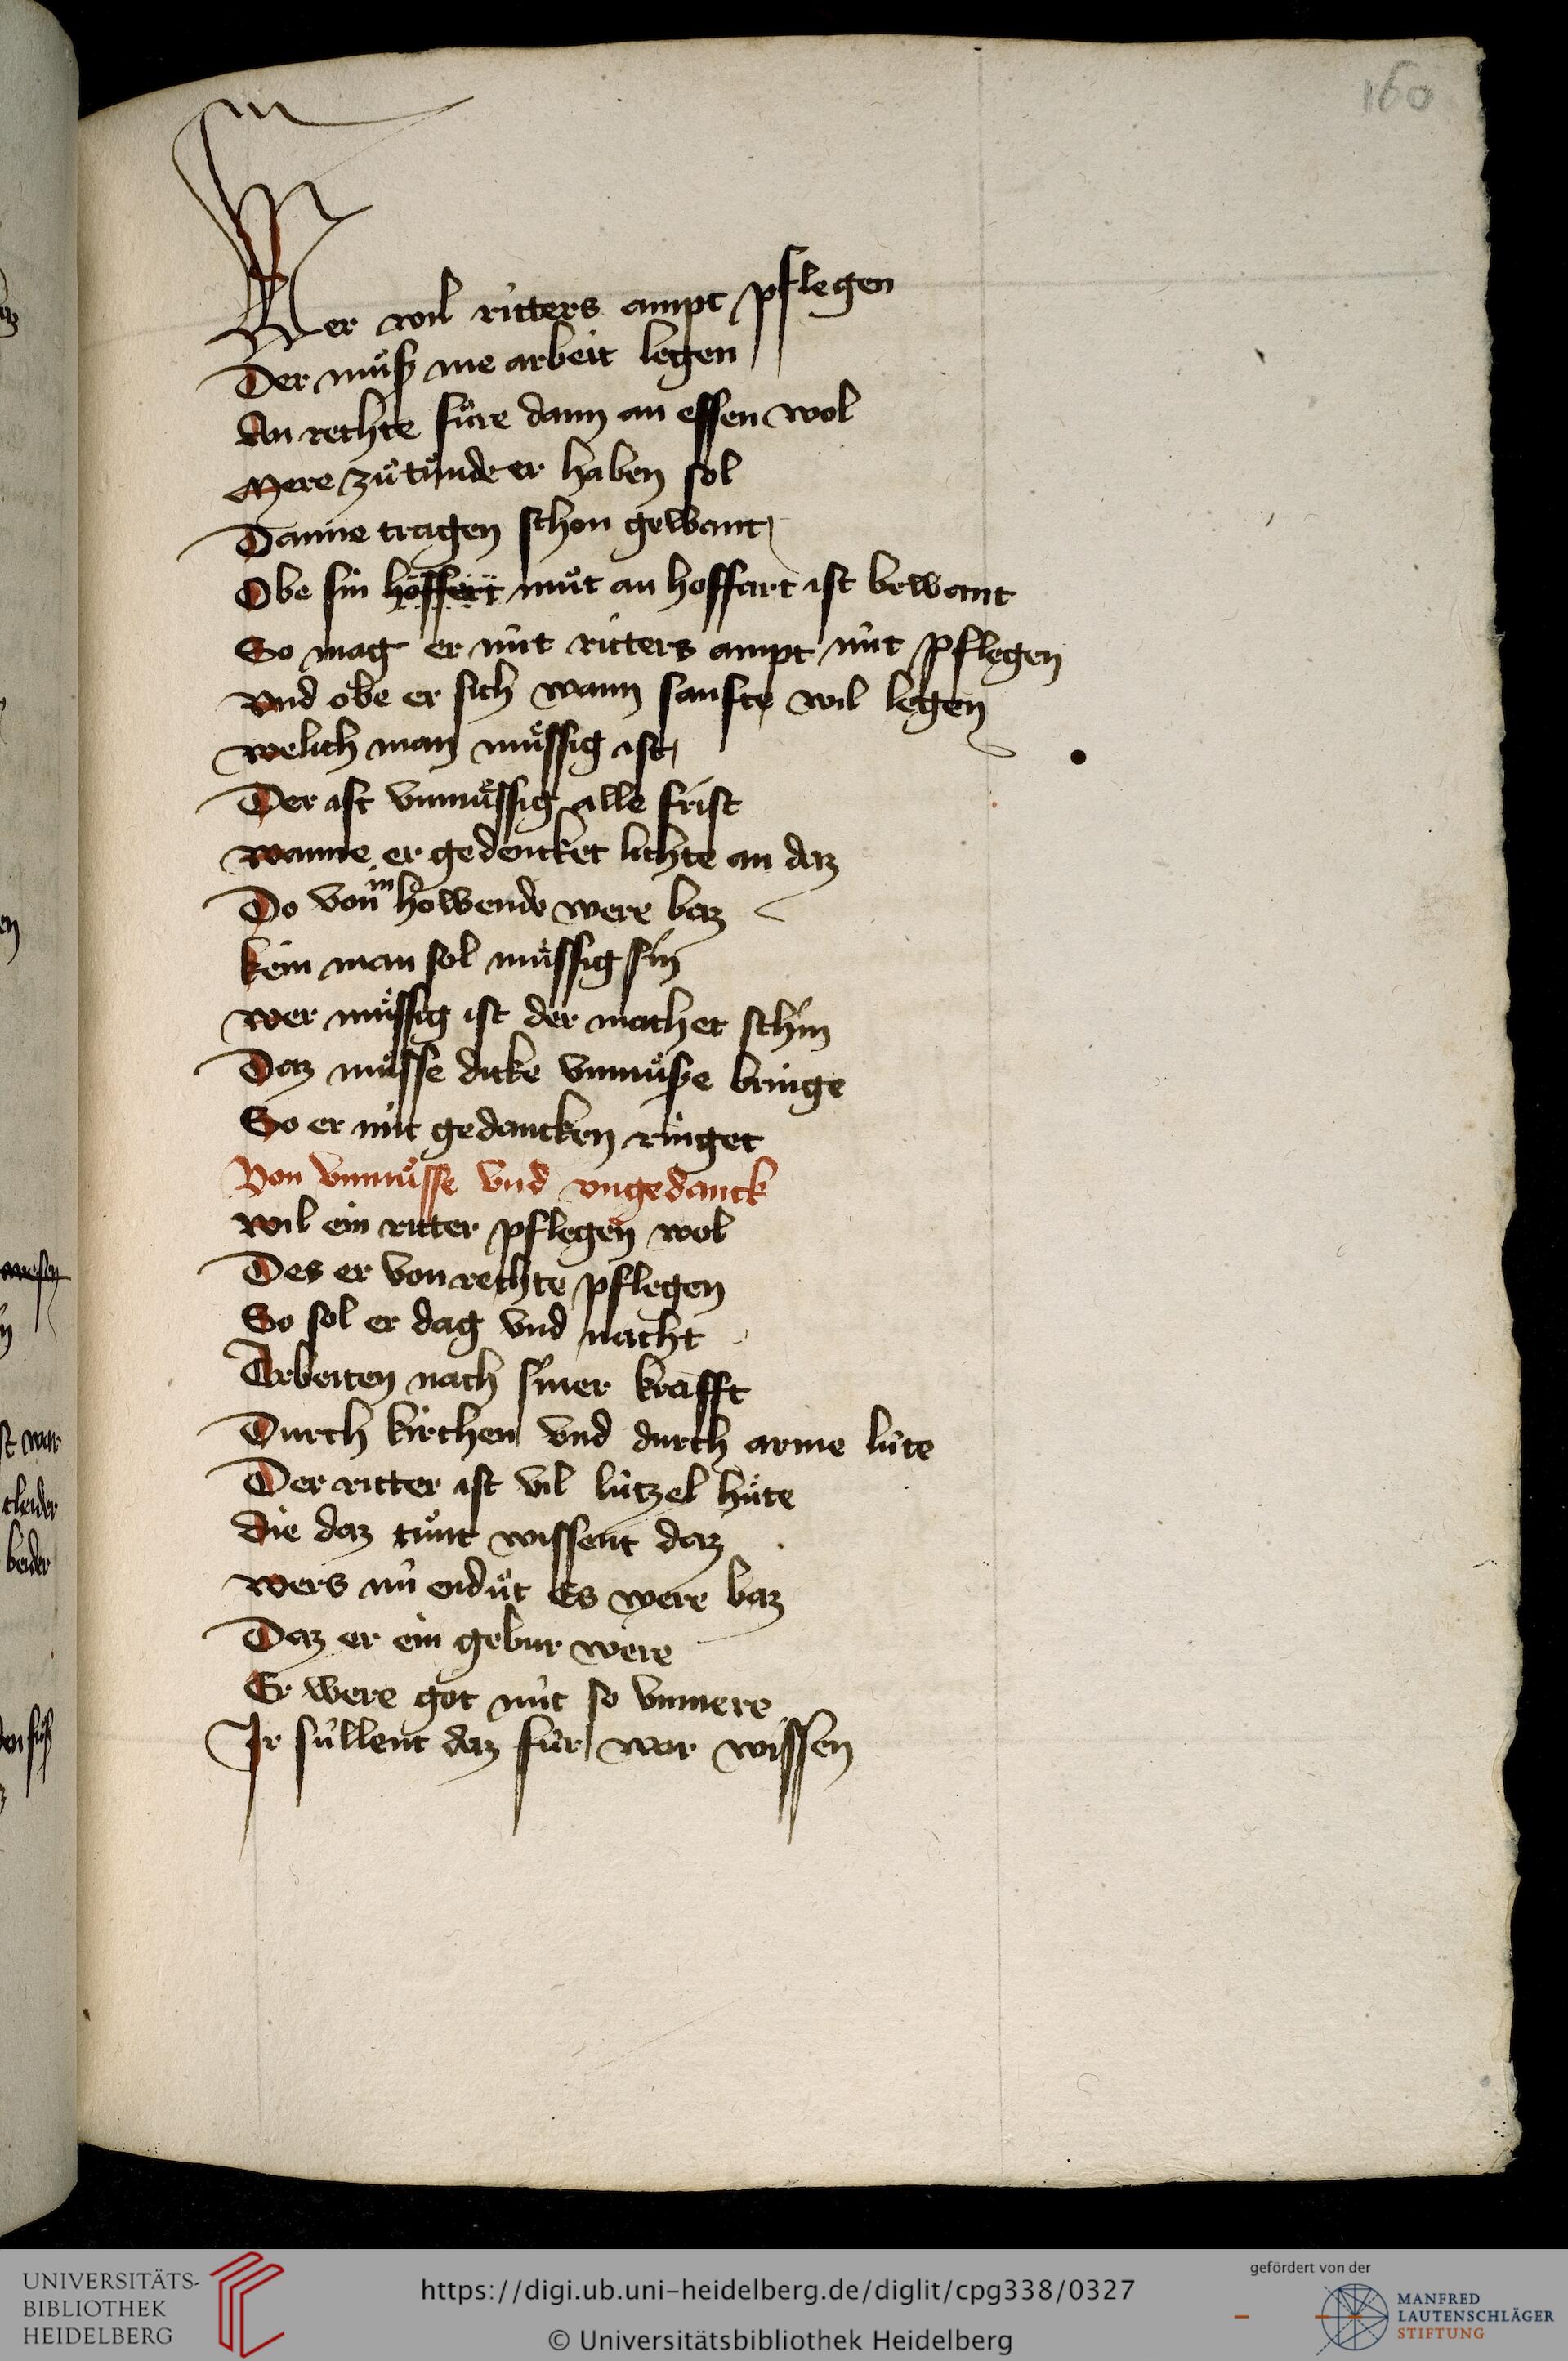 160
Wer wil ritters ampt pflegen
Der muͦß me arbeit legen
An rechte fuͤre dann an essen wol
Mere zuͦ tuͦnde er haben sol
Danne tragen schon gewant
Obe sin höffert muͦt an hoffart ist bewant
So mag er mit ritters ampt nit pflegen
vnd obe er sich wann sanfte wil legen
welich man muͤssig ist
Der ist vnmuͤssig alle frist
wanne er gedencket lichte an daz
Do von im howende were baz
kein man sol muͤssig sin
wer muͤssig ist der machet schin
Daz muͦsse dicke vnmuͦße bringe
So er mit gedancken ringet
Von vnmuͦsse vnd vngedanck
wil ein ritter pflegen wol
Des er von rechte pflegen
So sol er dag vnd nacht
Arbeiten nach siner krafft
Durch kirchen vnd durch arme lúte
Der ritter ist vil lútzel húte
die daz tuͦnt wissent daz
wers nú enduͦt Es were baz
Daz er ein gebur were
Er were got nút so vnmere
Ir súllent daz fúr wor wissen
en
wesen
st war
cleider
beider
UNIVERSITÄTS-
BIBLIOTHEK
HEIDELBERG
https://digi.ub.uni-heidelberg.de/diglit/cpg338/0327
© Universitätsbibliothek Heidelberg
gefördert von der
MANFRED
LAUTENSCHLÄGER
STIFTUNG